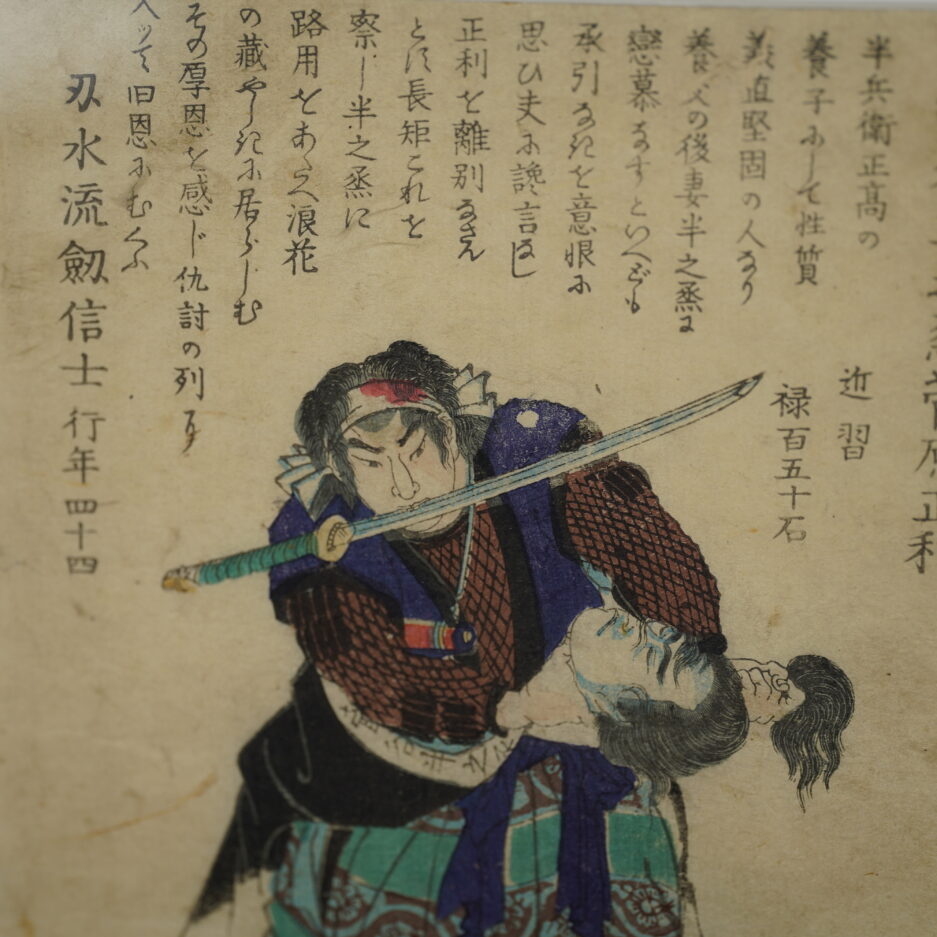 菅原正利
近習
禄百五十石
半兵衛正高の
養子ふして性質
義直堅固の人なり
養父の後妻半之烝に
戀慕なすといへども
承引なきを意恨ふ
思ひ夫ふ讒言なし
正利を離別なさん
とす長矩これを
察し半之烝に
路用をあたへ浪花
の藏やしきふ居らしむ
その厚恩を感じ仇討の列
入ッて旧恩ふむくふ
刄水流劔信士 行年四十四